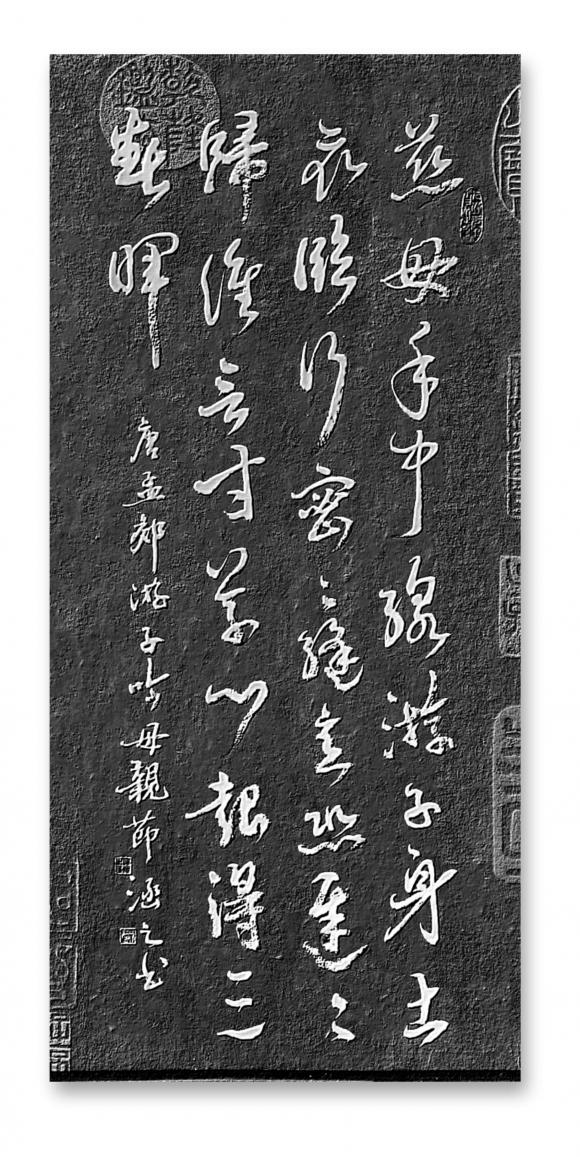 慈母手中線游子身上
衣臨行密々縫意恐遲々
歸誰言寸草心報得三
春暉
唐孟郊游子吟母親節涵之书